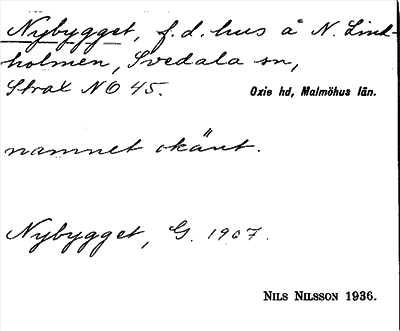 Nybygget, f.d. hus å N. Lind-
holmen, Svedala sn,
Strax NO 45. Oxie hd, Malmöhus län.
namnet okänt.
Nybygget, G. 1907.
NILS NILSSON 1936.